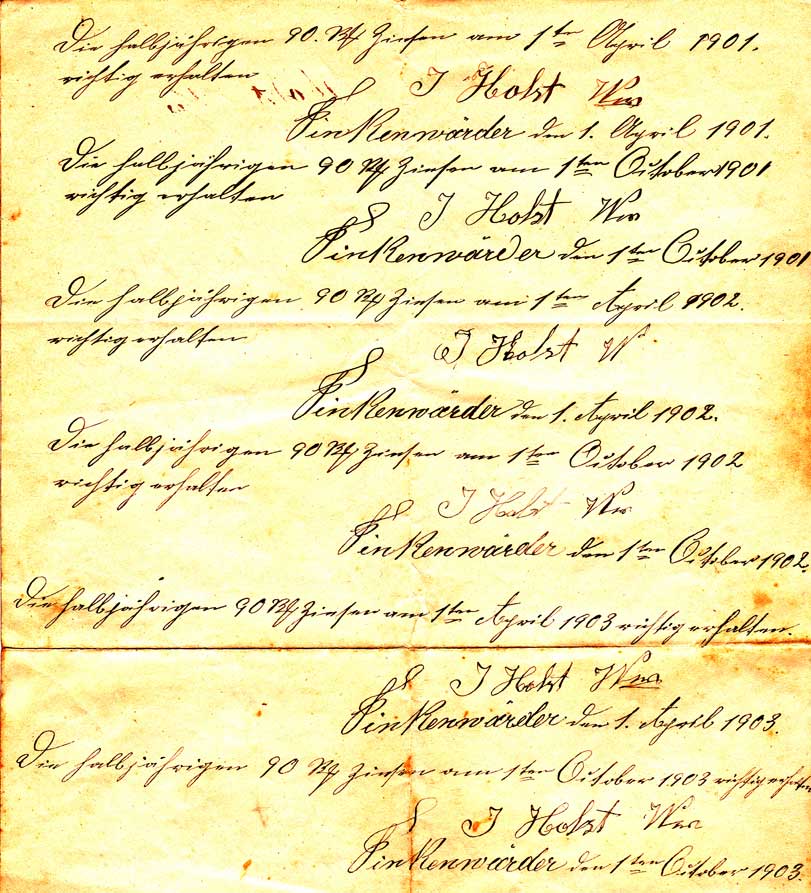 Die halbjährigen 90. Mk Zinsen am 1ten April 1901.
richtig erhalten
J Holst Wwe
Finkenwärder den 1. April 1901.
Die halbjährigen 90 Mk Zinsen am 1ten October 1901
richtig erhalten
J Holst Wwe
Finkenwärder den 1ten October 1901
Die halbjährigen 90 Mk Zinsen am 1ten April 1902.
richtig erhalten
J Holst W
Finkenwärder den 1. April 1902.
Die halbjährigen 90 Mk Zinsen am 1ten October 1902
richtig erhalten
J Holst Wwe
Finkenwärder den 1ten October 1902.
Die halbjährigen 90 Mk Zinsen am 1ten April 1903 richtig erhalten.
J Holst Wwe
Finkenwärder den 1. April 1903.
Die halbjährigen 90 Mk Zinsen am 1ten October 1903 richtig erhalten
J Holst Wwe
Finkenwärder den 1ten October 1903.